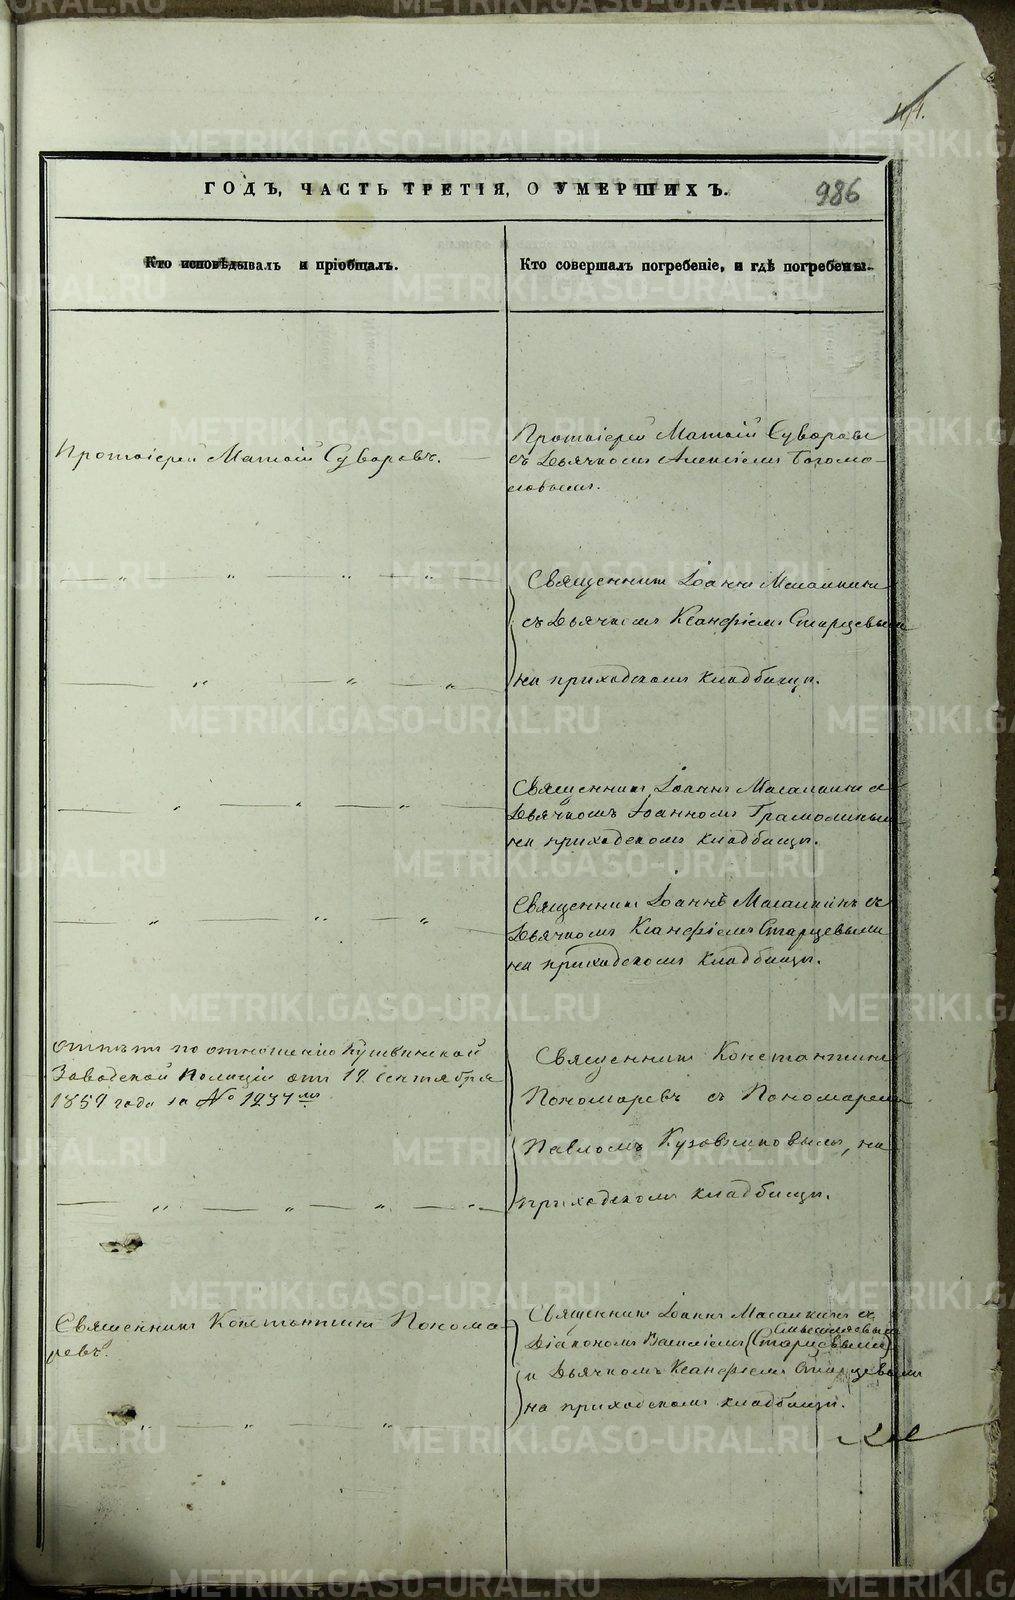 986
ГОДЪ, ЧАСТЬ ТРЕТІЯ, О УМЕРШИХЪ.
Кто исповѣдывалъ и пріобщалъ.
Кто совершалъ погребеніе, и гдѣ погребены.
Протоіерей Матѳій Суворовъ.
Протоіерей Матѳій Суворовъ
съ Дьячкомъ Алексіемъ Богомо-
ловымъ.
Священникъ Іоаннъ
съ Дьячкомъ Ксанфіемъ Старцевымъ
на приходскомъ кладбищѣ.
Священникъ Іоаннъ Масалкинъ съ
Дьячкомъ Іоанномъ Грамолинымъ
на приходскомъ кладбищѣ.
Священникъ Іоаннъ Масалкинъ съ
Дьячкомъ Ксанфіемъ Старцевымъ
на приходскомъ кладбищѣ.
по отношенію Кушвинской
Заводской Полиціи отъ 19 Сентября
1859 года за № 1237мъ
Священникъ Константинъ
Пономаревъ съ Пономаремъ
Павломъ Кузовниковымъ, на
приходскомъ кладбищѣ.
Священникъ Константинъ Понома-
ревъ.
Священникъ Іоаннъ Масалкинъ съ
Діакономъ Василіемъ (Старцевымъ)
и Дьячкомъ Ксанфіемъ Старцевымъ
на приходскомъ кладбищѣ.
METRIKI.GASO-URAL.RU